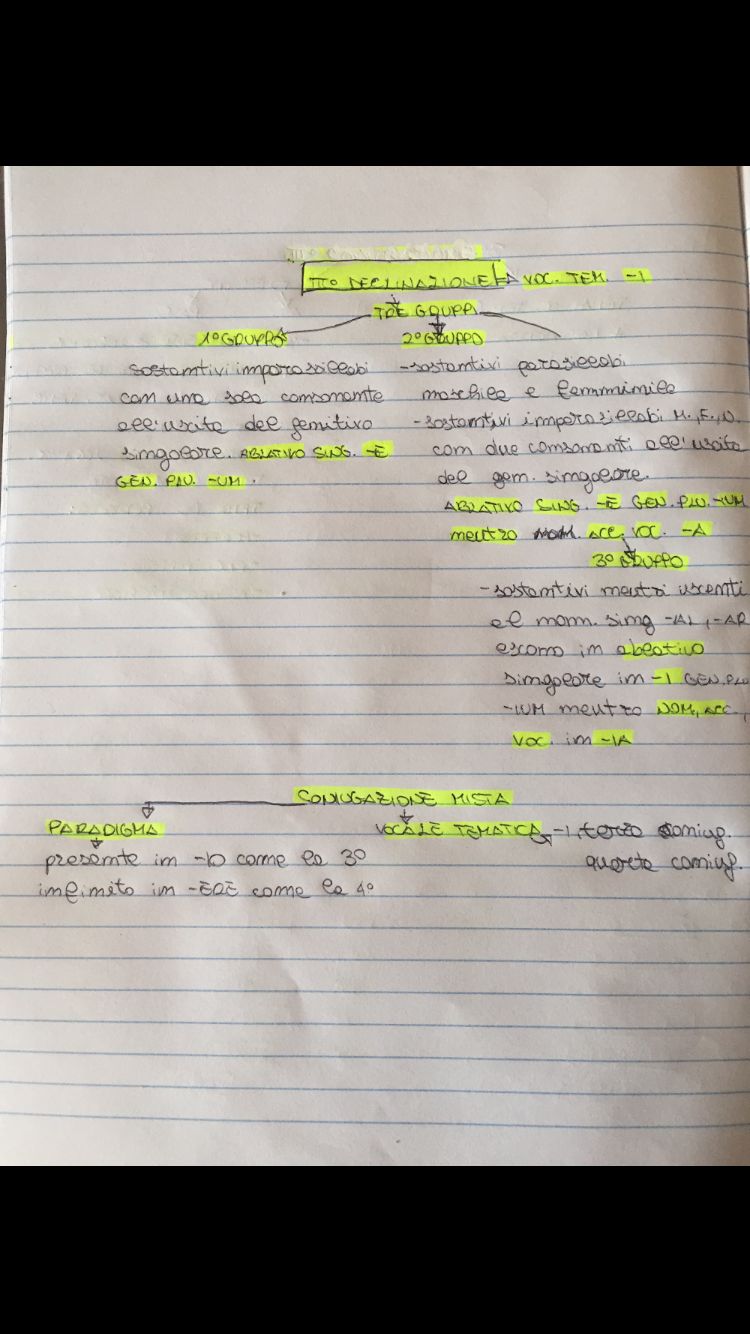 III° DECLINAZIONE → VOC. TEM. -I
TRE GRUPPI
1° GRUPPO
sostantivi imparasillabi
con una sola consonante
all'uscita del genitivo
singolare. ABLATIVO SING. -E
GEN. PLU. -UM.
2° GRUPPO
-sostantivi parasillabi
maschile e femminile
-sostantivi imparasillabi M., F., N.
con due consonanti all'uscita
del gen. singolare.
ABLATIVO SING. -E GEN. PLU. -IUM
neutro NOM. ACC. VOC. -A
3° GRUPPO
-sostantivi neutri uscenti
al nom. sing -AL, -AR
escono in ablativo
singolare in -I GEN. PLU
-IUM neutro NOM, ACC.,
VOC. in -IA
CONIUGAZIONE MISTA
PARADIGMA
presente in -IO come la 3°
infinito in -ĔRE come la 4°
VOCALE TEMATICA → -I, terza coniug.
quarta coniug.